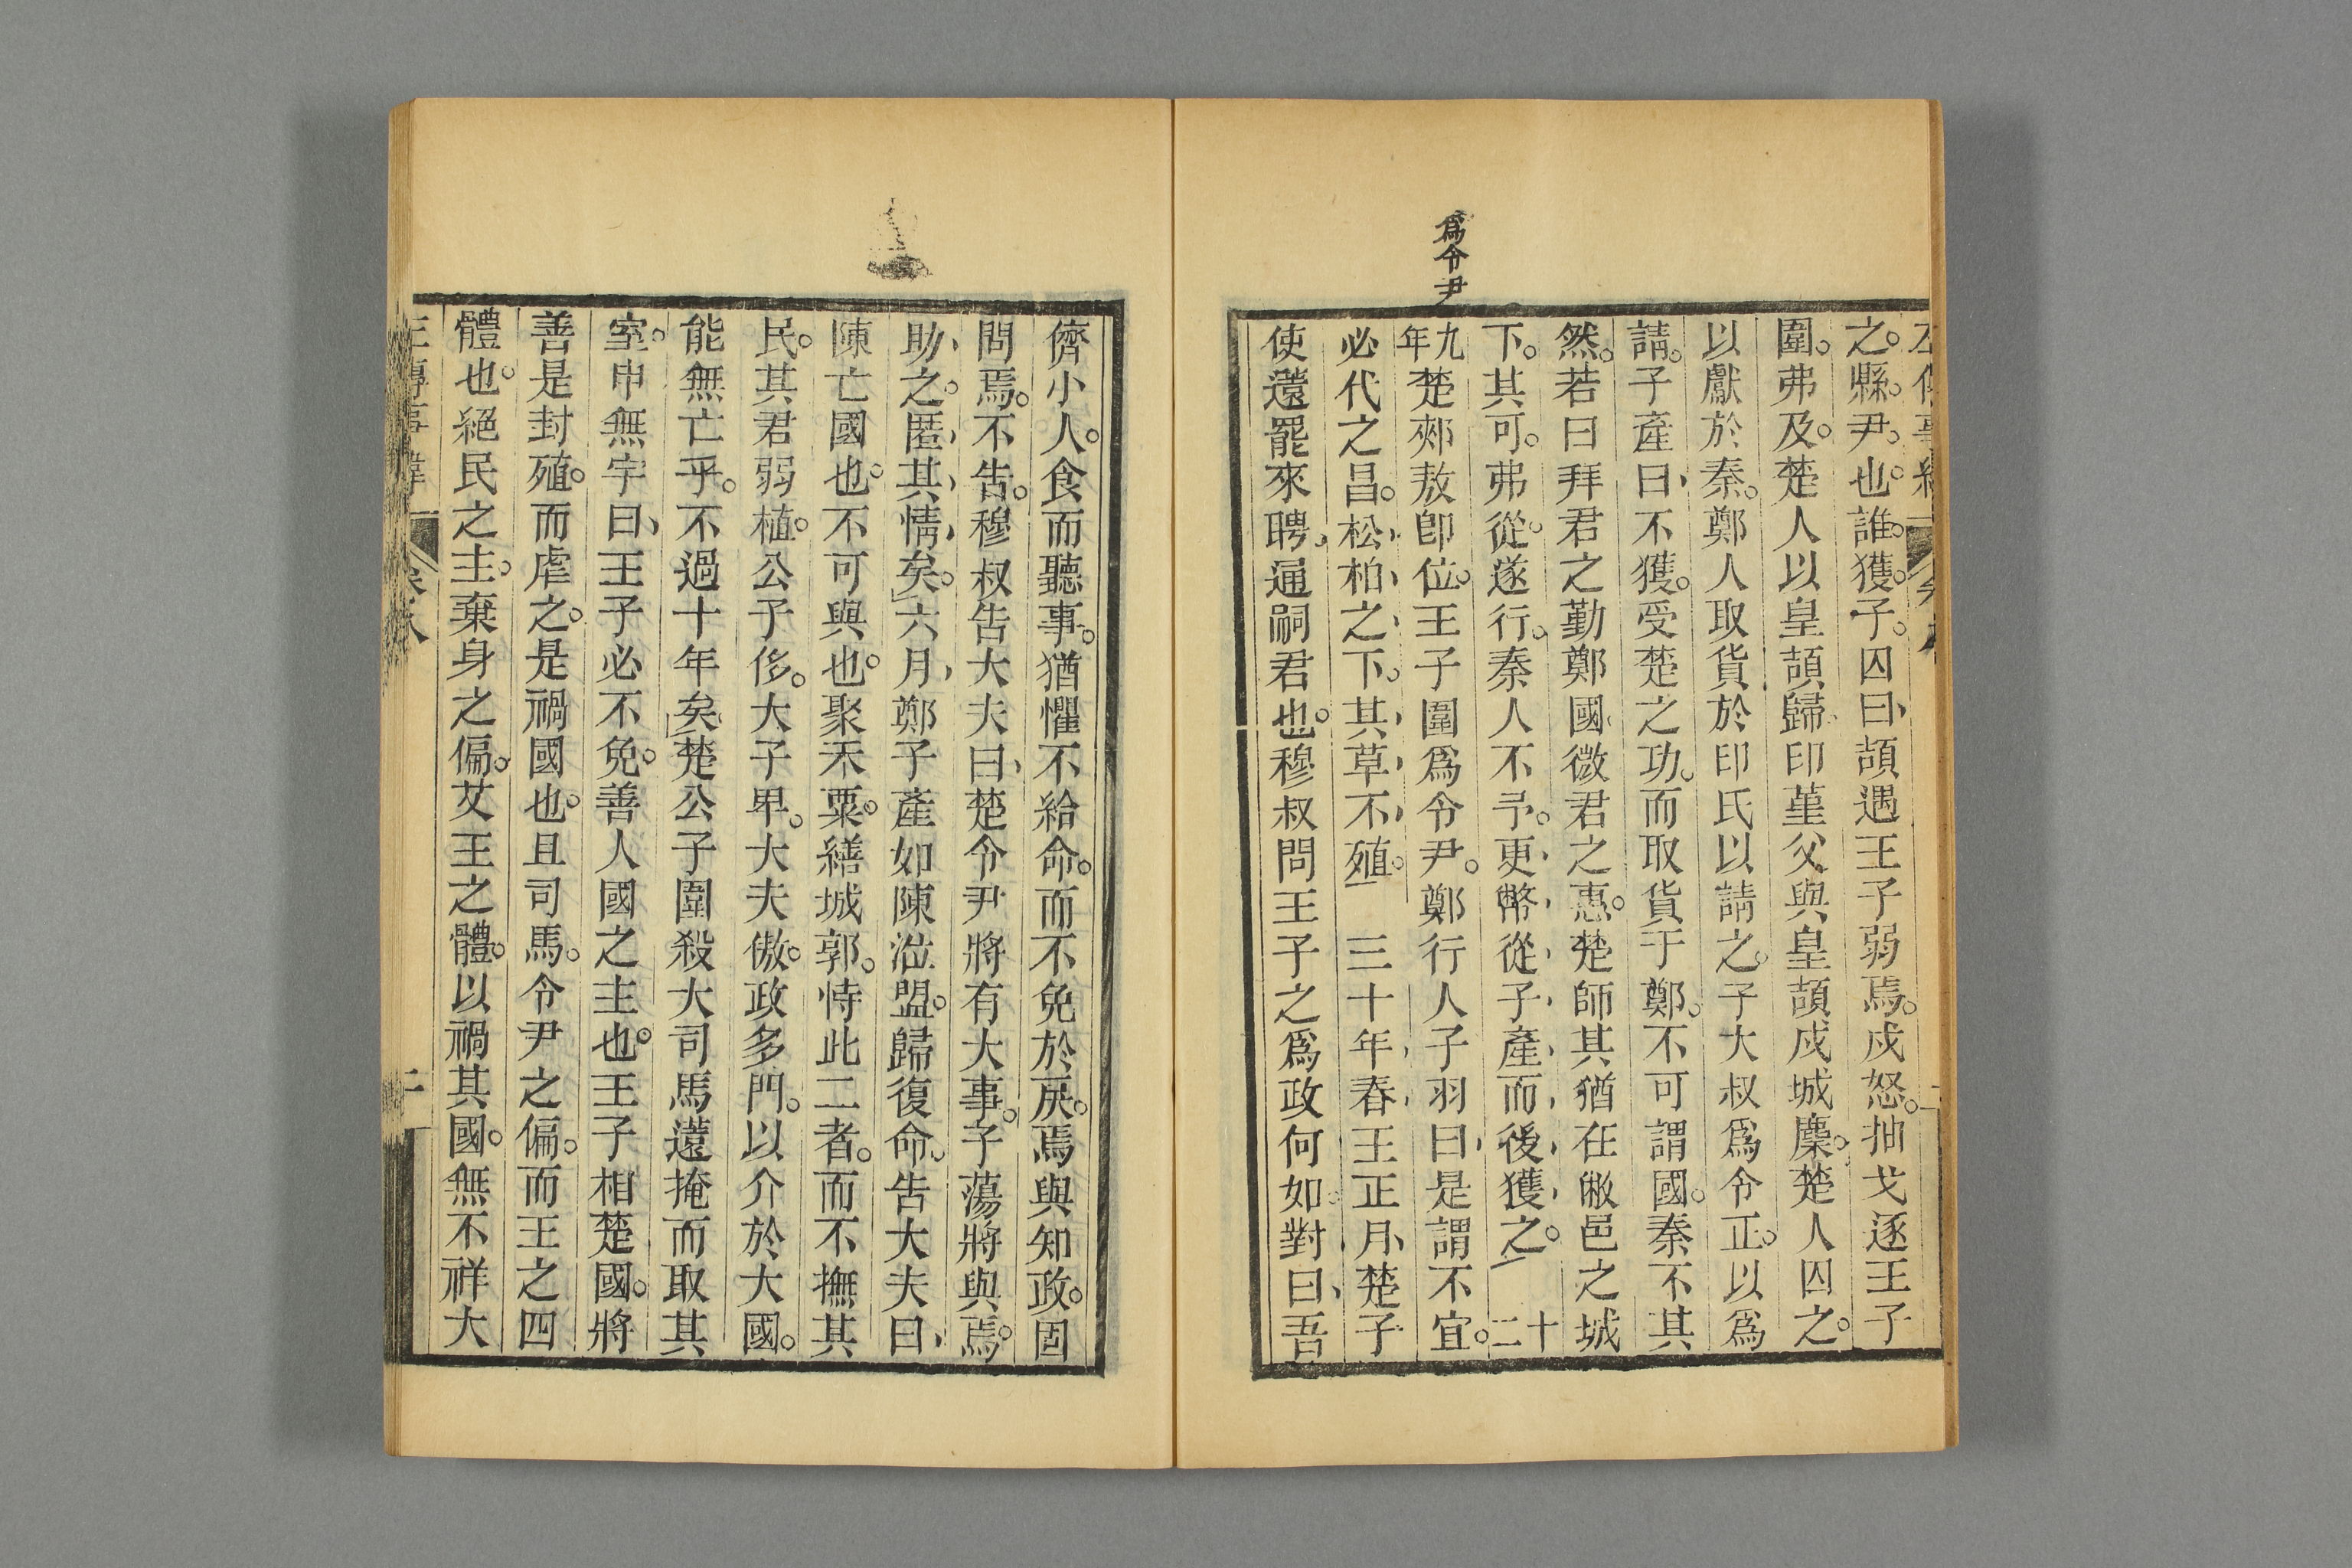 爲令尹
之縣尹也誰獲子囚曰頡遇王子弱焉戍怒抽戈逐王子
圍弗及楚人以皇頡歸印堇父與皇頡戍城麇楚人囚之
以獻於秦鄭人取貨於印氏以請之子大叔爲令正以爲
請子產曰不獲受楚之功而取貨于鄭不可謂國秦不其
然若曰拜君之勤鄭國微君之惠楚師其猶在敝邑之城
下其可弗從遂行秦人不予更幣從子產而後獲之 二十
九年楚郟敖卽位王子圍爲令尹鄭行人子羽曰是謂不宜
必代之昌松柏之下其草不殖 三十年春王正月楚子
使薳罷來聘通嗣君也穆叔問王子之爲政何如對曰吾
儕小人食而聽事猶懼不給命而不免於戾焉與知政固
問焉不告穆叔告大夫曰楚令尹將有大事子蕩將與焉
助之匿其情矣六月鄭子產如陳涖盟歸復命告大夫曰
陳亡國也不可與也聚禾粟繕城郭恃此二者而不撫其
民其君弱植公子侈大子卑大夫傲政多門以介於大國
能無亡乎不過十年矣楚公子圍殺大司馬薳掩而取其
室申無宇曰王子必不免善人國之主也王子相楚國將
善是封殖而虐之是禍國也且司馬令尹之偏而王之四
體也絕民之主棄身之偏艾王之體以禍其國無不祥大